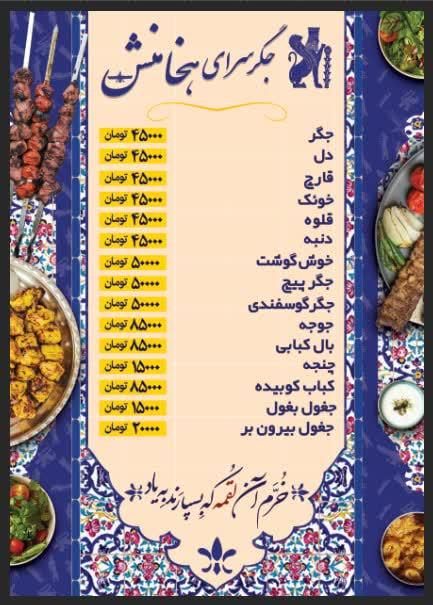 جگرسرای هخامنش
جگر ۴۵۰۰۰ تومان
دل ۴۵۰۰۰ تومان
قارچ ۴۵۰۰۰ تومان
خوئک ۴۵۰۰۰ تومان
قلوه ۴۵۰۰۰ تومان
دنبه ۴۵۰۰۰ تومان
خوش گوشت ۵۰۰۰۰ تومان
جگر پیچ ۵۰۰۰۰ تومان
جگر گوسفندی ۵۰۰۰۰ تومان
جوجه ۸۵۰۰۰ تومان
بال کبابی ۸۵۰۰۰ تومان
چنجه ۱۵۰۰۰ تومان
کباب کوبیده ۸۵۰۰۰ تومان
جغول بغول ۱۵۰۰۰ تومان
جغول بیرون بر ۲۰۰۰۰ تومان
خُرَّم آن لُقمه که بسپارند به یاد